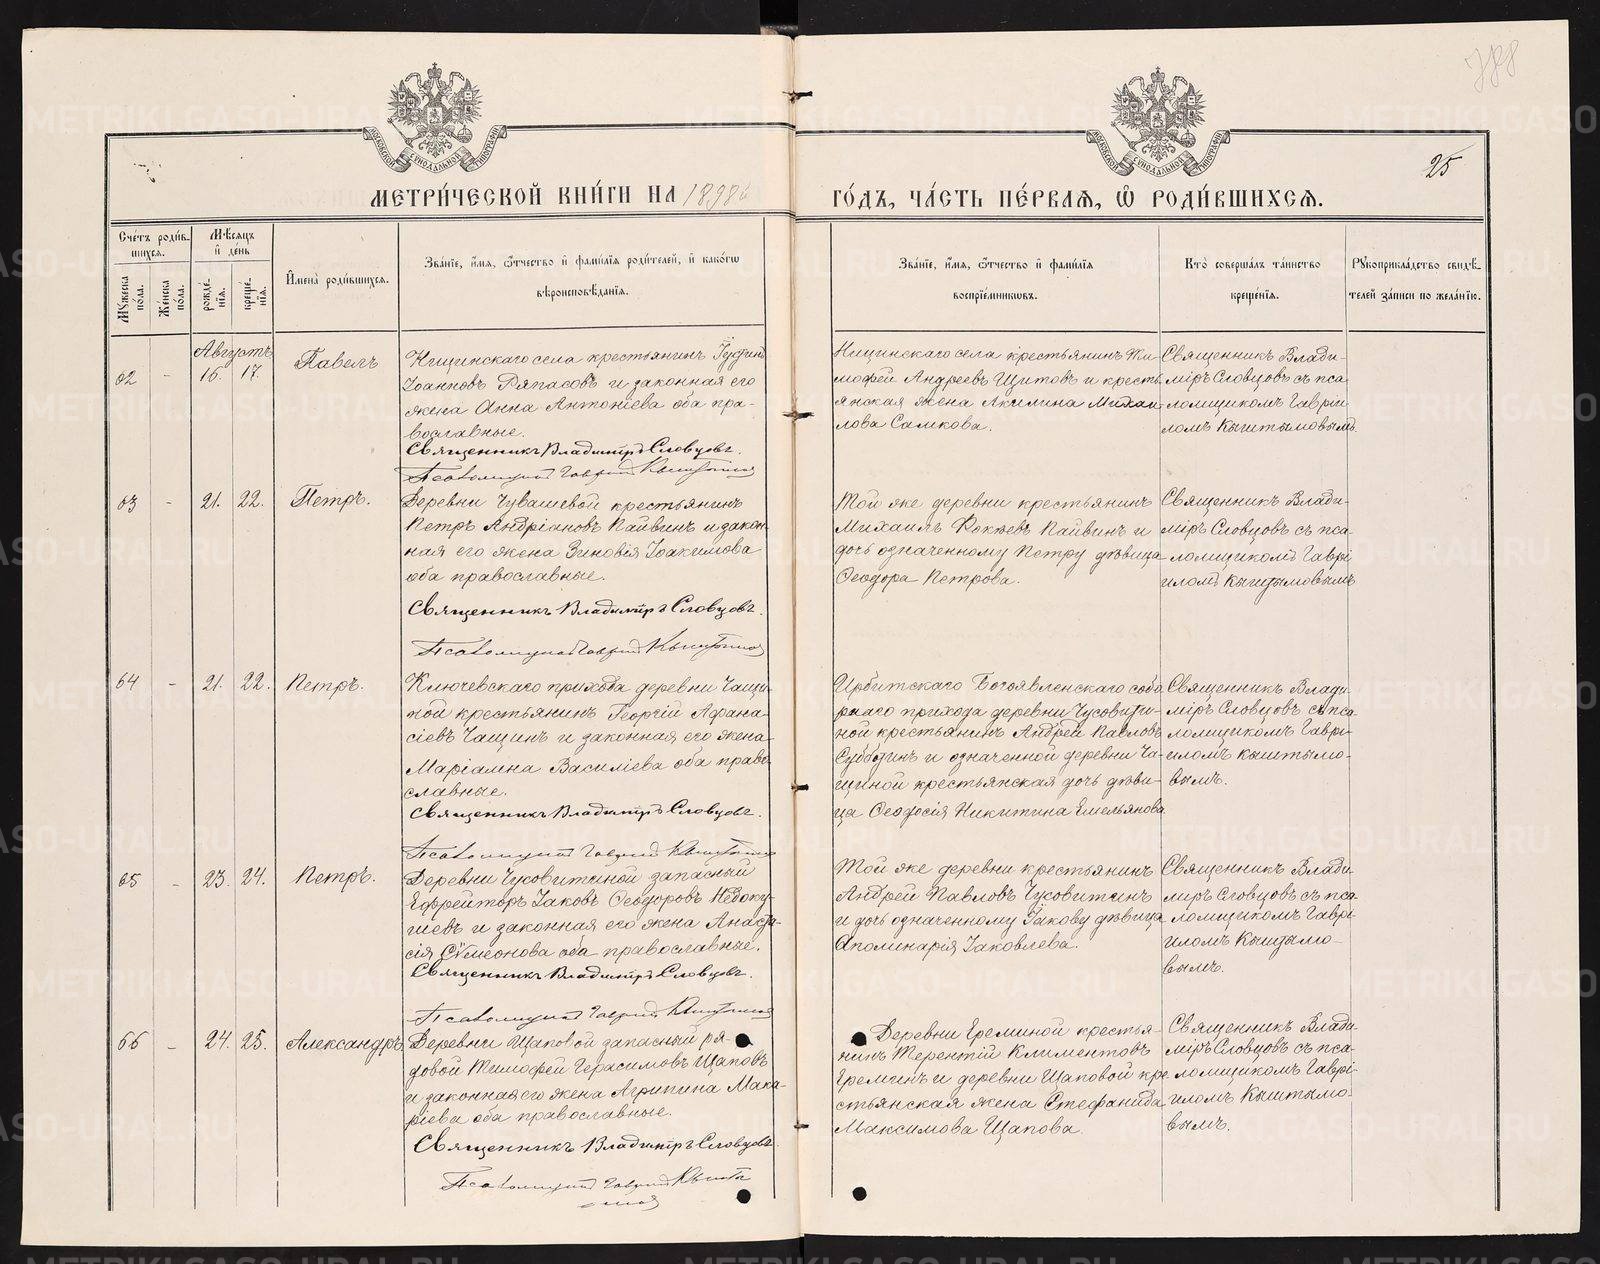 388
25
МОСКОВСКОЙ СѴНОДАЛЬНОЙ ТИПОГРАФІИ
МОСКОВСКОЙ СѴНОДАЛЬНОЙ ТИПОГРАФІИ
МЕТРИ́ЧЕСКОЙ КНИ́ГИ НА 1898 г
ГО́ДЪ, ЧА́СТЬ ПЕ́РВАѦ, Ѡ РОДИ́ВШИХСѦ.
Сче́тъ роди́в-
шихсѧ.
Мꙋжеска по́ла.
Же́нска по́ла.
Мѣ́сѧцъ
и҆ де́нь
рожде́-
нїѧ.
креще́-
нїѧ.
И҆мена̀ роди́вшихсѧ.
Зва́нїе, и҆́мѧ, ѻ҆́тчество и҆ фами́лїѧ роди́телей, и҆ како́гѡ
вѣроисповѣ́данїѧ.
Зва́нїе, и҆́мѧ, ѻ҆́тчество и҆ фами́лїѧ
воспрїе́мникѡвъ.
Кто̀ соверша́лъ та́инство
креще́нїѧ.
Рꙋкоприкла́дство свидѣ́-
телей за́писи по жела́нїю.
Августъ
62 - 16. 17. Павелъ
Ницинскаго села крестьянинъ
Іоанновъ Ряпасовъ и законная его
жена Анна Антоніева оба пра-
вославные.
Священникъ Владиміръ Словцовъ.
Псаломщикъ Гавріилъ Кыштымовъ
Ницинскаго села крестьянинъ Ти-
мофей Андреевъ Щитовъ и кресть
янская жена Акилина Михаи
лова Самкова.
Священникъ Влади-
міръ Словцовъ съ пса
ломщикомъ Гаврі
ломъ Кыштымовымъ.
63 - 21. 22. Петръ.
Деревни Чувашевой крестьянинъ
Петръ Андріановъ Пайвинъ и закон-
ная его жена Зиновія Іоакимова
оба православные.
Священникъ Владиміръ Словцовъ.
Псаломщикъ Гавріилъ Кыштымовъ
Той же деревни крестьянинъ
Михаилъ Фокѣевъ Пайвинъ и
дочь означенному Петру дѣвица
Ѳеодора Петрова.
Священникъ Влади-
міръ Словцовъ съ пса
ломщикомъ Гаврі
иломъ Кыштымовымъ
64 - 21. 22. Петръ.
Ключевскаго прихода деревни Чащи-
ной крестьянинъ Георгій Афана-
сіевъ Чащинъ и законная его жена
Маріамна Василіева оба право
славные.
Священникъ Владиміръ Словцовъ.
Псаломщикъ Гавріилъ Кыштымовъ
Ирбитскаго Богоявленскаго собо
рнаго прихода деревни Чусовити-
ной крестьянинъ Андрей Павловъ
Субботинъ и означенной деревни Ча-
щиной крестьянская дочь дѣви-
ца Ѳеодосія Никитина Емельянова.
Священникъ Влади
міръ Словцовъ съ пса
ломщикомъ Гаврі-
иломъ Кыштымо-
вымъ.
65 - 23. 24. Петръ.
Деревни Чусовитиной запасный
Ефрейторъ Іаковъ Ѳеодоровъ Недоку-
шевъ и законная его жена Анаста-
сія Сѵмеонова оба православные.
Священникъ Владиміръ Словцовъ.
Псаломщикъ Гавріилъ Кыштымовъ
Той же деревни крестьянинъ
Андрей Павловъ Чусовитинъ
и дочь означенному Іакову дѣвица
Аполинарія Іаковлева.
Священникъ Влади
міръ Словцовъ съ пса
ломщикомъ Гаврі
иломъ Кыштымо-
вымъ.
66 - 24. 25. Александръ
Деревни Щаповой запасный ря-
довой Тимофей Герасимовъ Щаповъ
и законная его жена Агрипина Мака-
ріева оба православные.
Священникъ Владиміръ Словцовъ
Псаломщикъ Гавріилъ Кышты
мовъ
Деревни Ереминой крестья-
нинъ Терентій Климентовъ
Ереминъ и деревни Щаповой кре
стьянская жена Стефанида
Максимова Щапова.
Священникъ Влади-
міръ Словцовъ съ пса-
ломщикомъ Гаврі-
иломъ Кыштымо-
вымъ.
METRIKI.GASO-URAL.RU